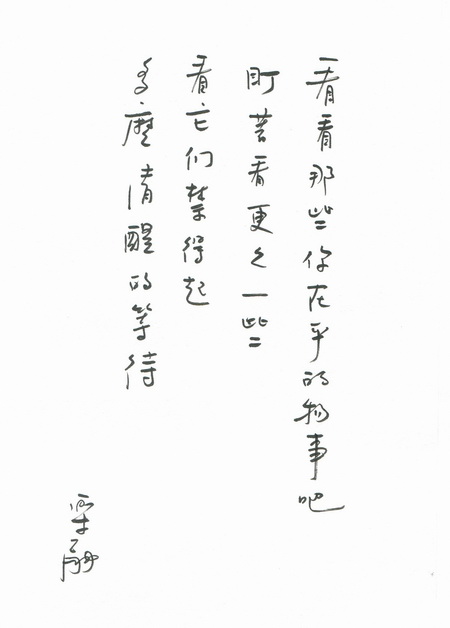 看看那些你在乎的物事吧
盯著看更久一些
看它们禁得起
多麼清醒的等待